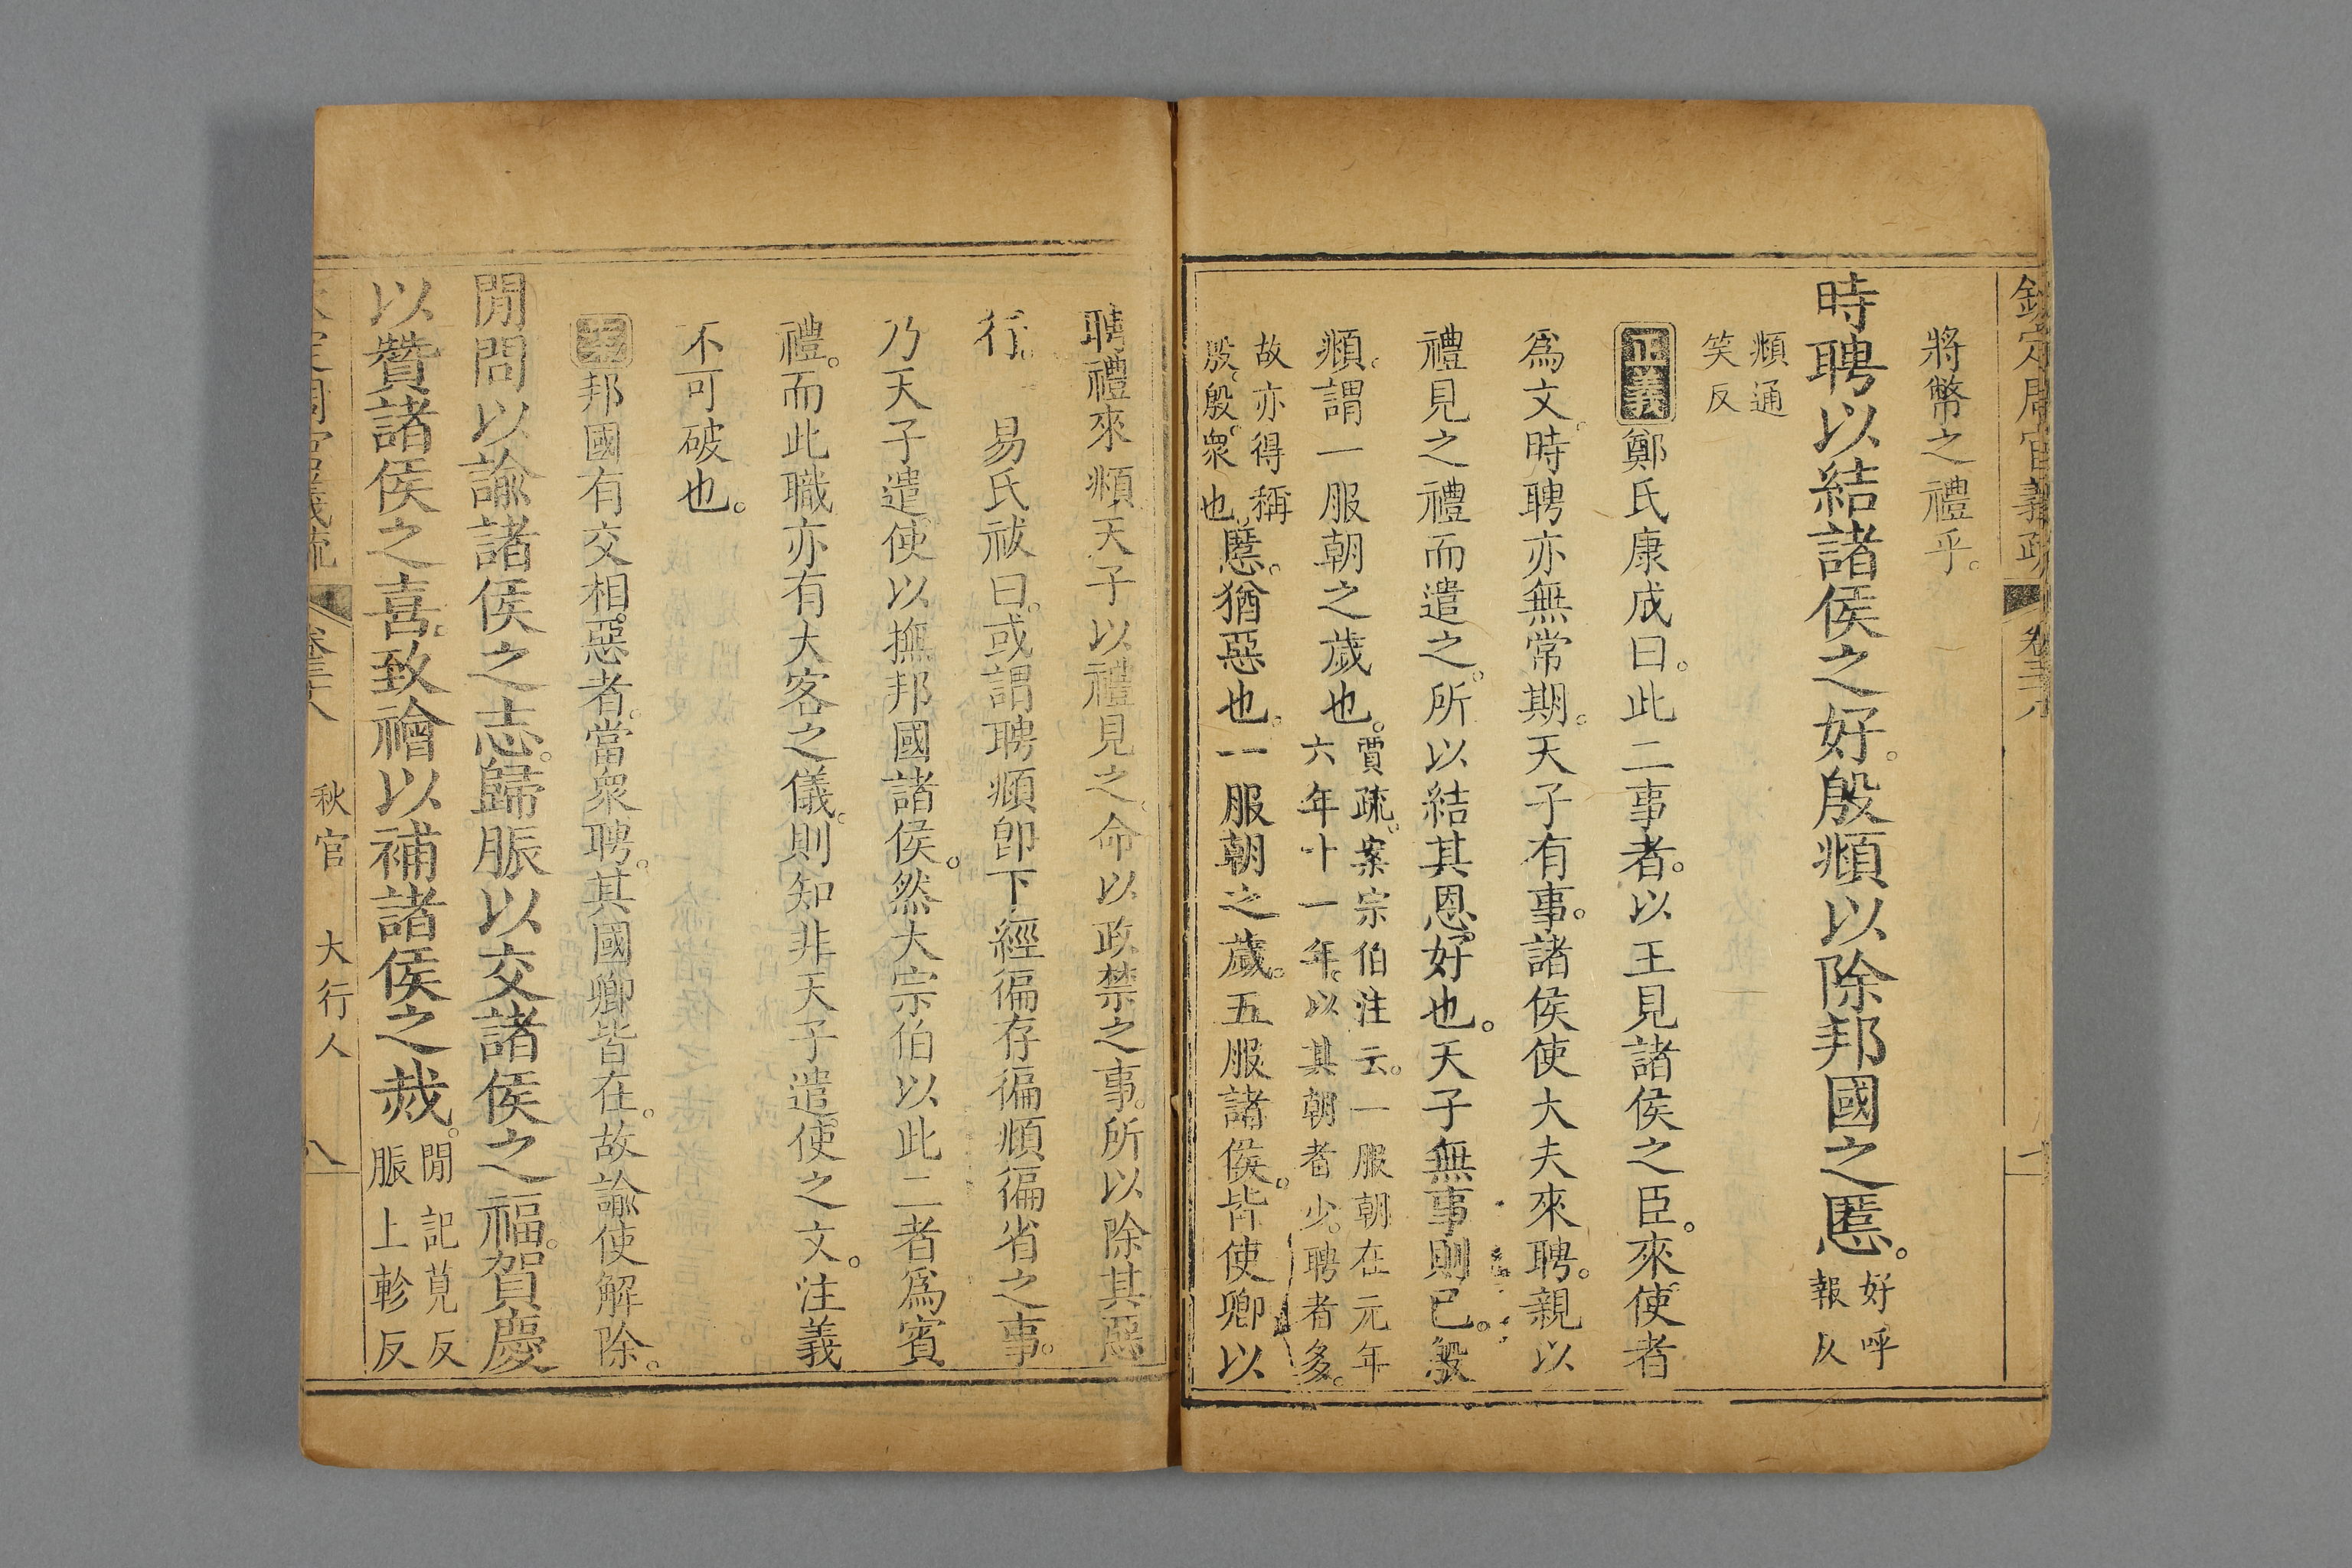 欽定周官義疏 卷三十八
將幣之禮乎。
時聘以結諸侯之好。殷頫以除邦國之慝。好呼報反
頫通笑反
正義 鄭氏康成曰。此二事者。以王見諸侯之臣。來使者
爲文。時聘亦無常期。天子有事。諸侯使大夫來聘。親以
禮見之。禮而遣之。所以結其恩好也。天子無事則已。殷
頫。謂一服朝之歲也。賈疏。案宗伯注云。一服朝在元年
六年十一年。以其朝者少。聘者多。
故亦得稱殷。殷。衆也。慝。猶惡也。一服朝之歲。五服諸侯。皆使卿以
聘禮來頫天子。以禮見之。命以政禁之事。所以除其惡
行。 易氏祓曰。或謂聘頫卽下經徧存徧頫徧省之事。
乃天子遣使以撫邦國諸侯。然大宗伯以此二者爲賓
禮。而此職亦有大客之儀。則知非天子遣使之文。注義
不可破也。
邦國有交相惡者。當衆聘。其國卿皆在。故諭使解除。
閒問以諭諸侯之志。歸脤以交諸侯之福。賀慶
以贊諸侯之喜。致禬以補諸侯之烖。閒記莧反
脤上軫反
欽定周官義疏 卷三十八 秋官 大行人 八